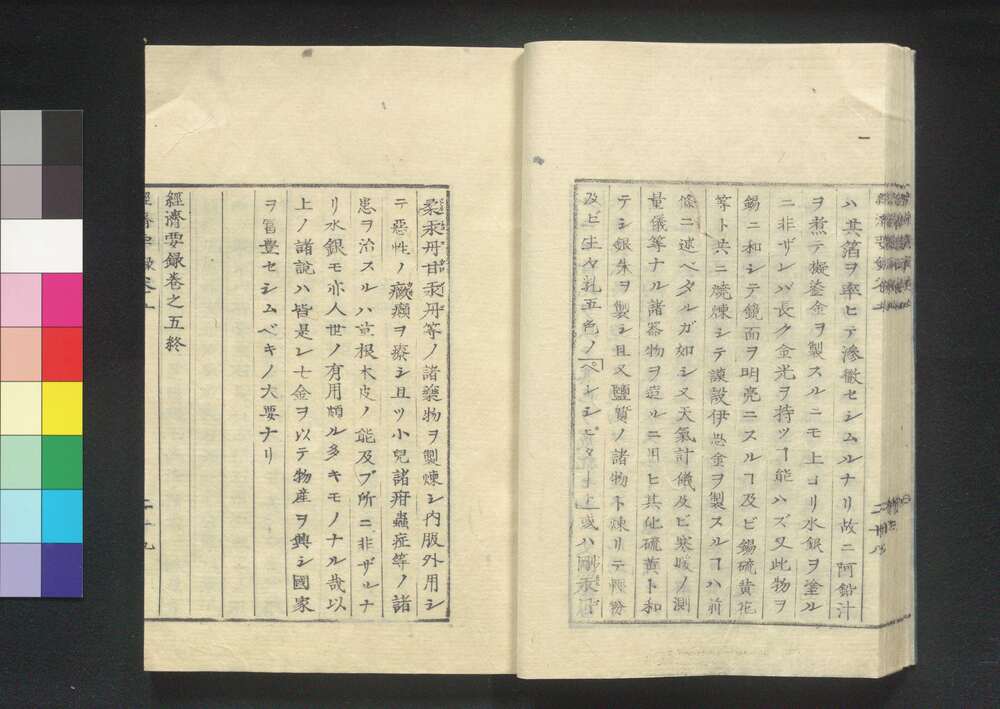 ハ其箔ヲ率ヒテ滲徹セシムルナリ故ニ阿鉛汁
ヲ煮テ擬鍌金ヲ製スルニモ上ヨリ水銀ヲ塗ル
ニ非ザレバ長ク金光ヲ持ツヿ能ハズ又此物ヲ
錫ニ和シテ鏡面ヲ明亮ニスルヿ及ビ錫硫黄花
等ト共ニ焼煉シテ謨設伊恖金ヲ製スルヿハ前
條ニ述ベタルガ如シ又天氣計儀及ビ寒暖ノ測
量儀等ナル諸器物ヲ造ルニ用ヒ其他硫黄ト和
テシ銀朱ヲ製シ且又鹽質ノ諸物ト煉リテ輕粉
及ビ生々乳五色ノ 或ハ剛汞丹
柔汞丹甘汞丹等ノ諸藥物ヲ製煉シ内服外用シ
テ惡性ノ癜癩ヲ療シ且ツ小兒諸疳蟲症等ノ諸
患ヲ治スルハ草根木皮ノ能及ブ所ニ非ザルナ
リ水銀モ亦人世ノ有用頗ル多キモノナル哉以
上ノ諸説ハ皆是レ七金ヲ以テ物産ヲ興シ國家
ヲ冨豊セシムベキノ大要ナリ
經濟要録卷之五終